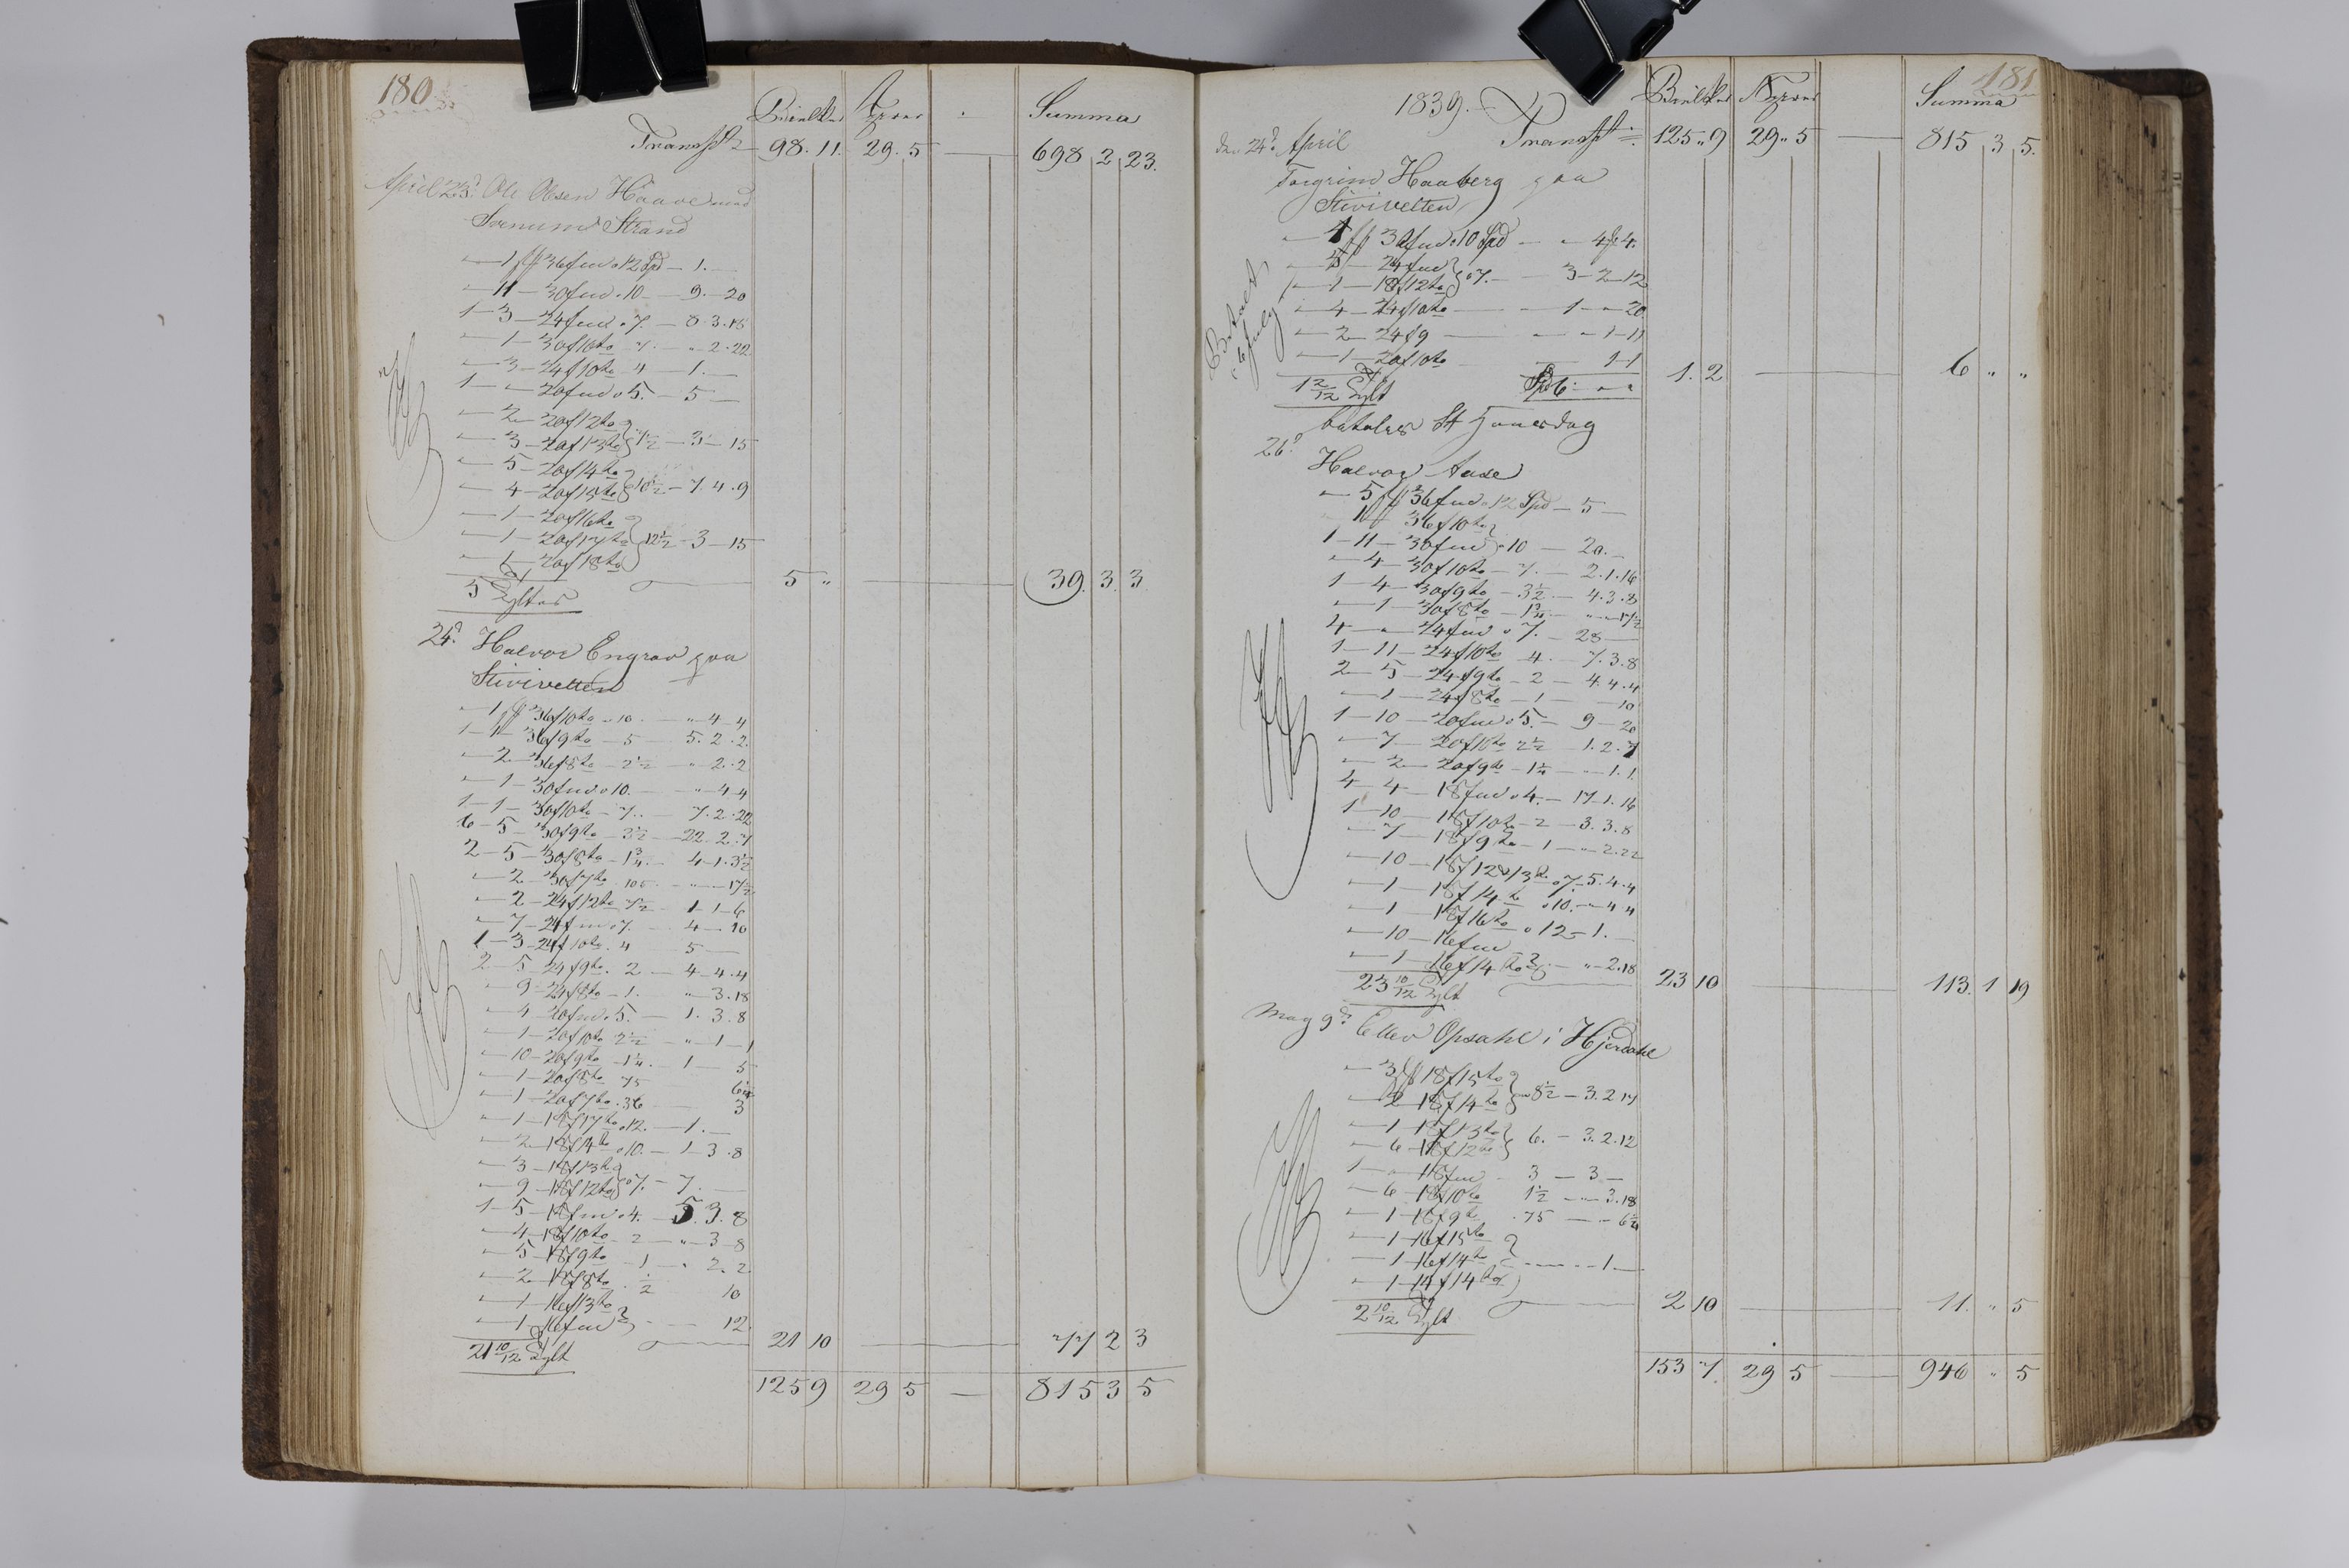 180
Bielker Tyver Summa
Transpt 98. 11. 29. 5 698 2 23.
April 23d. Ole Olsen Haave
Svenum Strand
1 ff 36fmd a 12 Spd 1.
11 30fmd . 10 9. 20
1 3 24fmd a 7. 8. 3. 18
1 30f10to 7. " 2. 22
3 24f10to 4 1.
1 " 20fmd a 5. 5
2 20f12to
3 20f13to 7½ 3 15
5 20f14to
4 20f15to 10½ 7. 4. 9
1 20f16to
1 20f17to 12½ 3 15
1 20f18to
5 Tylter 5 " 39. 3. 3
24d. Halvor Engrav paa
Stivivetten
1 ff 36f10to a 10 " 4 4
1 1 36f9to 5 5. 2. 2
2 36f8to 2½ " 2. 2
1 30fmd a 10. " 4 4
1 1 30f10to 7. 7. 2. 22
6 5 30f9to 3½ 22. 2. 7
2 5 30f8to 1¾ 4. 1. 3½
2 30f7to 105 " 17½
2 24f12to 7½ 1 1 6
7 24fmd a 7. 4 10
1 3 24f10to. 4 5
2 5 24f9to. 2 4. 4. 4
9 24f8to 1. " 3. 18
4 20fmd a 5. 1. 3. 8
1 20f10to 2½ " 1 1
10 20f9to 1¼. 1 5
1 20f8to 75 6¼
1 20f7to. 36 3
1 18f17to a 12. 1.
2 18f14to a 10. 1 3. 8
3 18f13to
9 18f12to a 7. 7.
1 5 18fmd a 4. 5. 3. 8
4 18f10to 2 " 3 8
5 18f9to 1 " 2. 2
2 18f8to ½ 10
1 16f13to
1 16fmd 12.
21 10/12 Tylt 21 10 77 2 3
125 9 29 5 815 3 5
181
1839. Bielker Tyver Summa
den 24d. April Transpt 125 " 9 29 " 5 815 3 5.
Torgrim Haaberg paa
Stivivetten
1 ff 30fmd a 10 Spd " 4 4.
5 24fmd
1 18f12to a 7. 3 2 12
4 24f10to 1 " 20
2 24f9 " 1 11
1 20f10to 1 1
1 2/12 Tylt Spd 6. " " 1. 2 6 " "
Betalt 6 July
betales St Hansdag
26d. Halvor Aase
5 ff 36fmd a 12 Spd 5
1 ff 36f10to
1 11 30fmd a 10 20.
4 30f10to 7. 2. 1. 16
1 4 30f9to 3½ 4. 3. 8
1 30f8to 1¾ " " 17½
4 " 24fmd a 7. 28
1 11 24f10to 4. 7. 3. 8
2 5 24f9to 2 4. 4. 4
1 24f8to 1 10
1 10 20fmd a 5. 9 20
7 20f10to 2½ 1. 2. 7
2 20f9to 1¼ " 1. 1.
4 4 18fmd a 4. 17. 1. 16
1 10 18f10to 2 3. 3. 8
7 18f9to 1 " 2. 22
10 18f12 a 13to a 7. 5. 4. 4
1 18f14to a 10. " 4 4
1 18f16to a 12 1.
10 16fmd
1 16f14to " 2. 18
23 10/12 Tylt 23 10 113. 1 19
May 9d. Ellev Opsahl i Hjerdahl
3 ff 18f15to
2 18f14to 8½ 3. 2. 17
1 18f13to
6 18f12to 6. 3. 2. 12
1 " 18fmd 3 3
6 18f10to 1½ " 3. 18
1 18f9to . 75 6¼
1 16f15to
1 16f14to 1
1 14f14to
2 10/12 Tylt 2 10 11. " 5
153 7. 29 5 946 " 5